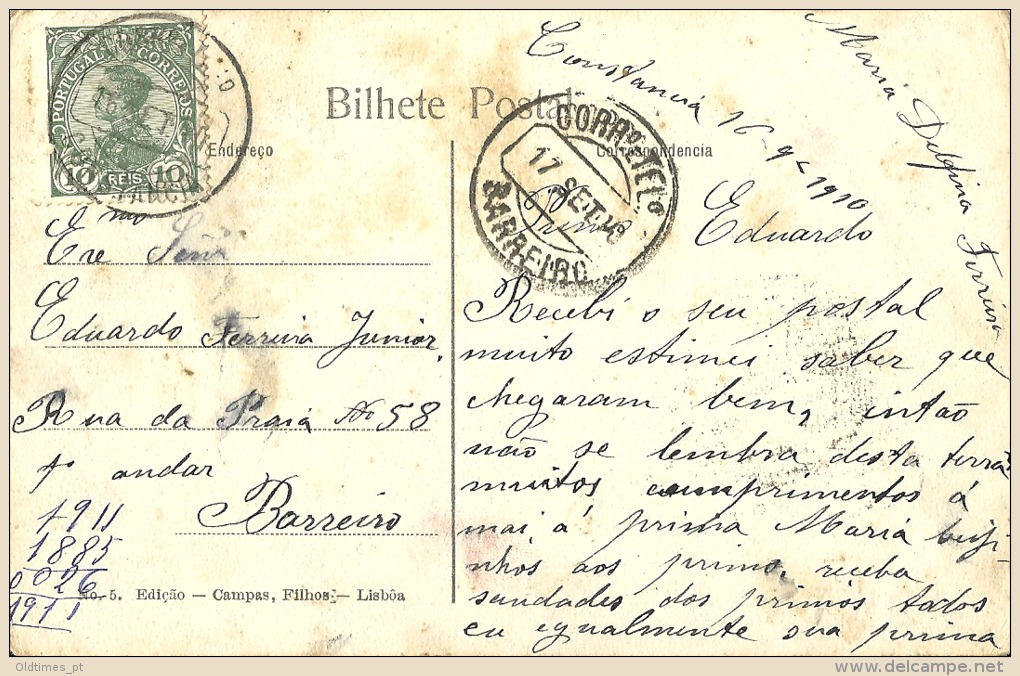 PORTUGAL CORREIOS
10 REIS 10
Bilhete Postal
Endereço
Correspondencia
CORRº E TELº
17 SET 10
BARREIRO
Exmo
Sñr
Eduardo Ferreira Junior,
Rua da Praia No 58
1º andar
Barreiro
1911
1885
0026
1911
No. 5. Edição — Campas, Filhos — Lisbôa
Constancia 16-9-1910
Primo Eduardo
Recebi o seu postal
muito estimei saber que
chegaram bem, intão
não se lembra desta terra
muitos cumprimentos á
mai, á prima Maria beiji-
nhos aos primo, receba
saudades dos primos todos
eu egualmente sua prima
Maria Delfina Ferreira
Oldtimes_pt
http://www.delcampe.net